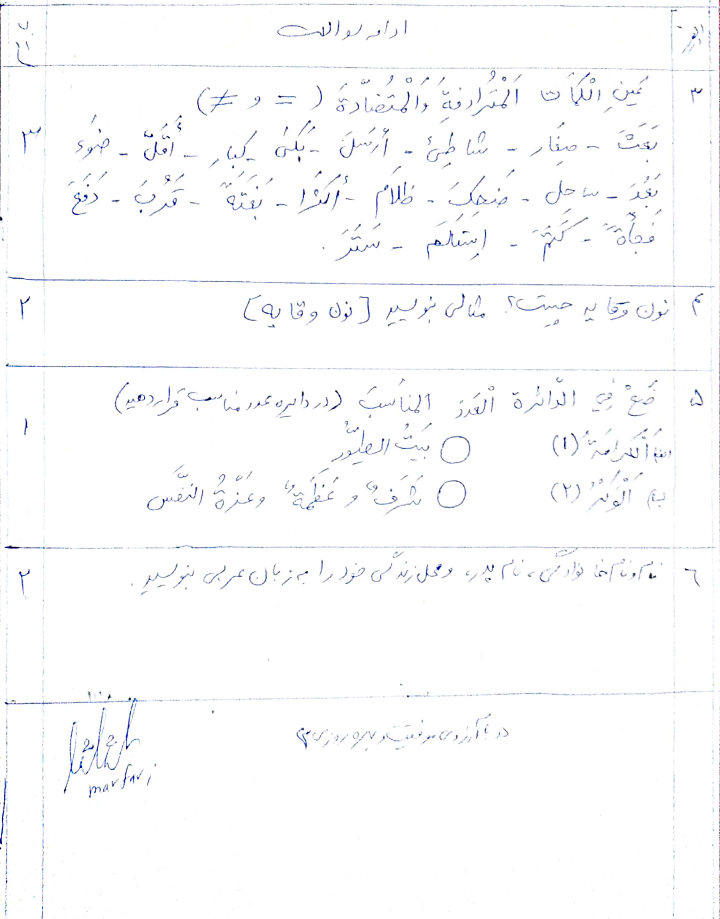 ادامه سوالات
۳ عَیِّنِ الْکَلِمَاتِ اَلْمُتَرادِفَةَ وَالْمُتَضادَّةَ ( = و ≠ )
بَعَثَ - صِغَار - شاطِئ - أَرسَلَ - بَکَیٰ - کِبار - أَقَلّ - ضَوء ۳
بَعُدَ - ساحِل - ضَحِکَ - ظَلام - أَکثَر - بَغتَةً - قَرُبَ - دَفَعَ
فَجأَةً - کَتَمَ - اِستَلَمَ - سَتَرَ .
۴ نون وقایه چیست؟ مثالی بنویسید [نون وقایه] ۲
۵ ضَعْ فِي الدّائرة الْعَدَدَ المناسَبَ (در دایره عدد مناسب قرار دهید) ۱
الف) اَلْکَرامَةُ (۱) بَیتُ الطُّیُور
ب) اَلْوَکْرُ (۲) شَرَفٌ و عَظَمَةٌ و عِزَّةُ النَّفس
۶ نام و نام خانوادگی، نام پدر، و محل زندگی خود را به زبان عربی بنویسید. ۲
آرزوی موفقیت و بهره‌روزی